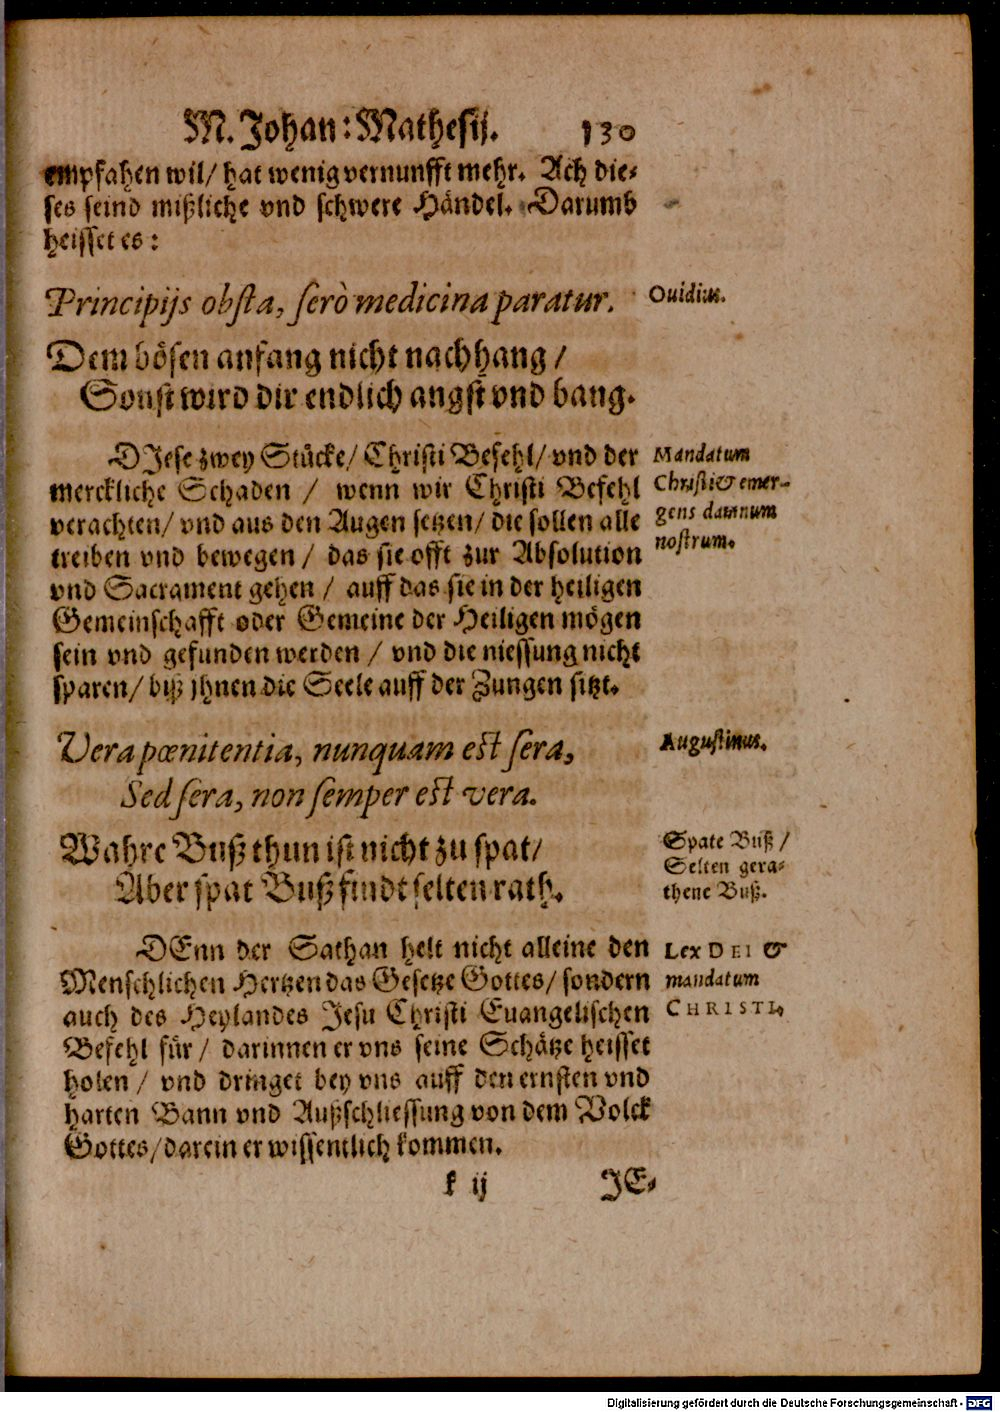 M. Johan: Mathesij. 130
empfahen wil/ hat wenig vernunfft mehr. Ach die-
ses seind mißliche vnd schwere Händel. Darumb
heisset es:
Principijs obsta, serò medicina paratur.
Ouidius.
Dem bösen anfang nicht nachhang/
Sonst wird dir endlich angst vnd bang.
DJese zwey Stücke/ Christi Befehl/ vnd der
merckliche Schaden / wenn wir Christi Befehl
verachten/ vnd aus den Augen setzen/ die sollen alle
treiben vnd bewegen / das sie offt zur Absolution
vnd Sacrament gehen / auff das sie in der heiligen
Gemeinschafft oder Gemeine der Heiligen mögen
sein vnd gefunden werden / vnd die niessung nicht
sparen/ biß jhnen die Seele auff der Zungen sitzt.
Mandatum
Christi & emer-
gens damnum
nostrum.
Vera pœnitentia, nunquam est sera,
Sed sera, non semper est vera.
Augustinus.
Wahre Buß thun ist nicht zu spat/
Aber spat Buß findt selten rath.
Spate Buß /
Selten gera-
thene Buß.
DEnn der Sathan helt nicht alleine den
Menschlichen Hertzen das Gesetze Gottes/ sondern
auch des Heylandes Jesu Christi Euangelischen
Befehl für / darinnen er vns seine Schätze heisset
holen / vnd dringet bey vns auff den ernsten vnd
harten Bann vnd Außschliessung von dem Volck
Gottes/ darein er wissentlich kommen.
Lex DEI &
mandatum
CHRISTI.
k ij JE-
Digitalisierung gefördert durch die Deutsche Forschungsgemeinschaft - DFG